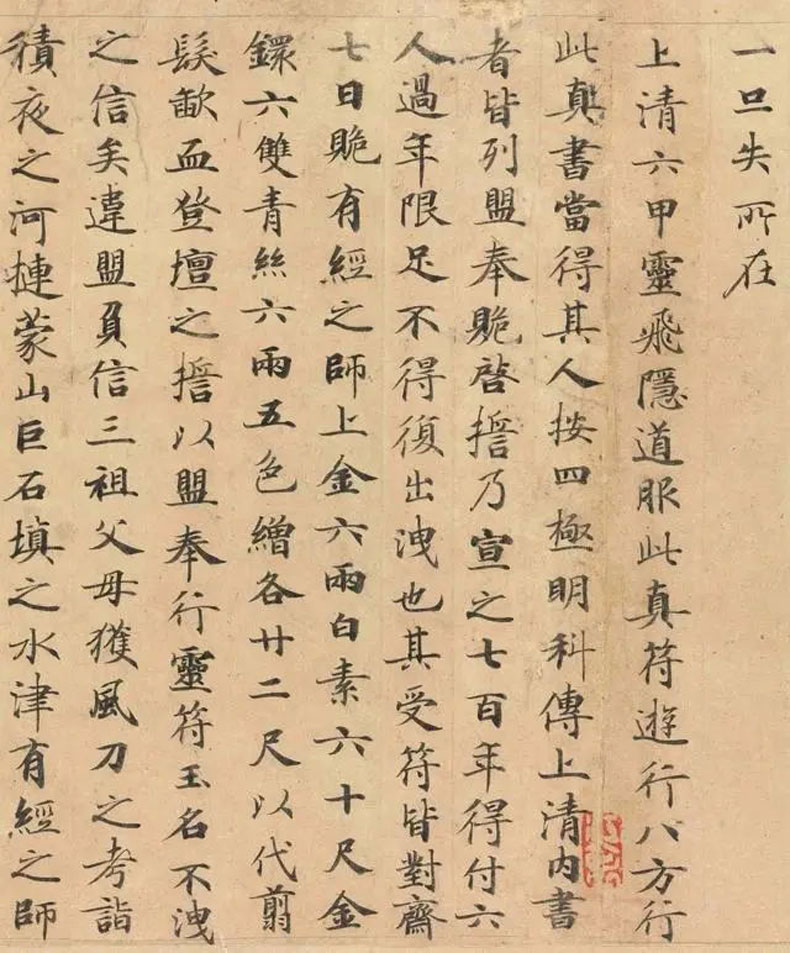 一旦失所在
上清六甲靈飛隱道服此真符遊行八方行
此真書當得其人按四極明科傳上清內書
者皆列盟奉貺啓撎乃宣之七百年得付六
人過年限足不得復出洩也其受符皆對齋
七日貺有經之師上金六兩白素六十尺金
鐶六雙青絲六兩五色繒各廿二尺以代翦
髮歃血登壇之撎以盟奉行靈符玉名不洩
之信矣違盟負信三祖父母獲風刀之考詣
積夜之河摙蒙山巨石填之水津有經之師